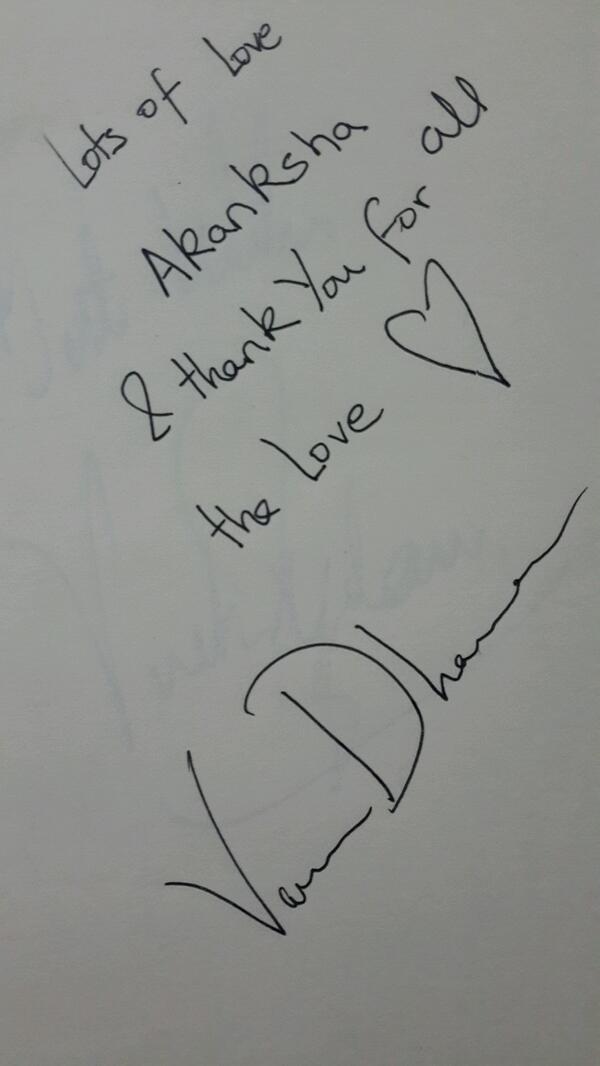 Lots of Love
Akanksha
& thank You for all
the Love
Varun Dhawan